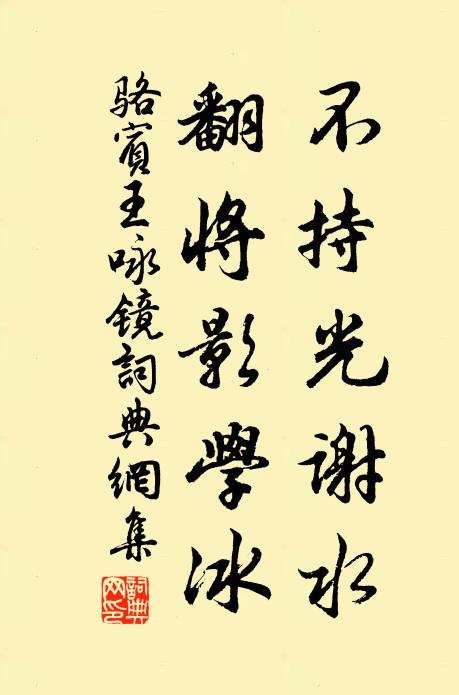 不持光謝水
翻將影學冰
駱賓王咏鏡詞典網集
詞典网印